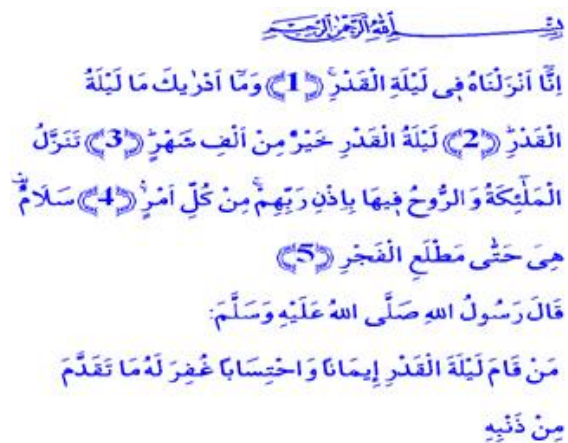 بِسْمِ اللهِ الرَّحْمٰنِ الرَّحِيمِ
اِنَّٓا اَنْزَلْنَاهُ ف۪ى لَيْلَةِ الْقَدْرِۚ ﴿1﴾ وَمَٓا اَدْرٰيكَ مَا لَيْلَةُ
الْقَدْرِۜ ﴿2﴾ لَيْلَةُ الْقَدْرِ خَيْرٌ مِنْ اَلْفِ شَهْرٍۜ ﴿3﴾ تَنَزَّلُ
الْمَلٰٓئِكَةُ وَ الرُّوحُ ف۪يهَا بِاِذْنِ رَبِّهِمْۚ مِنْ كُلِّ اَمْرٍۙ ﴿4﴾ سَلَامٌ۠
هِىَ حَتّٰى مَطْلَعِ الْفَجْرِ ﴿5﴾
قَالَ رَسُولُ اللهِ صَلَّى اللهُ عَلَيْهِ وَسَلَّمَ:
مَنْ قَامَ لَيْلَةَ الْقَدْرِ إِيمَانًا وَاحْتِسَابًا غُفِرَ لَهُ مَا تَقَدَّمَ
مِنْ ذَنْبِهِ